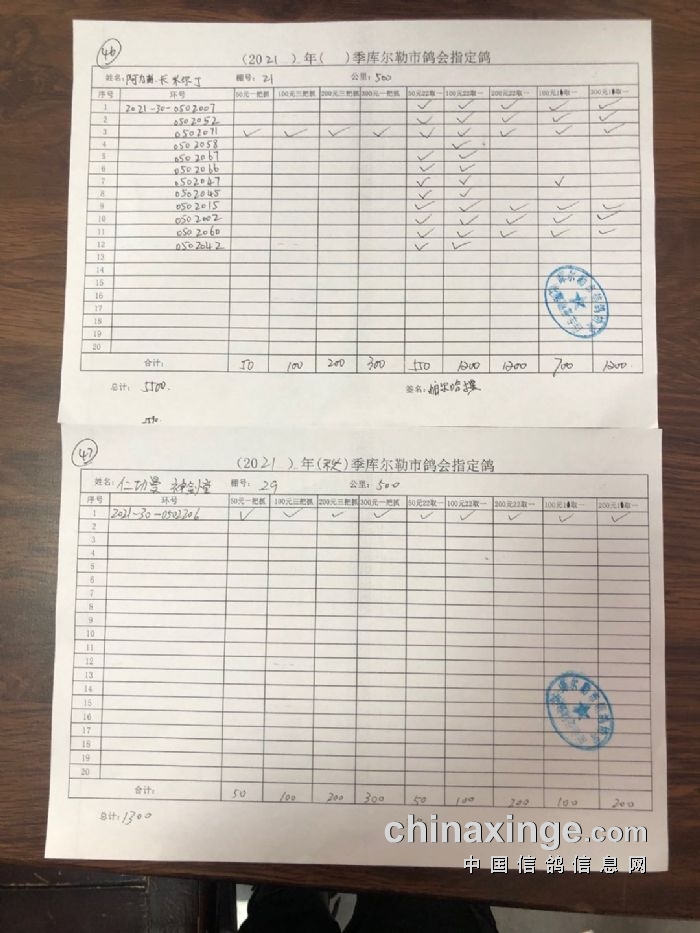 46
(2021 ) 年( )季库尔勒市鸽会指定鸽
姓名: 棚号: 21 公里: 500
序号 环号 50元一把抓 100元三把抓 200元三把抓 300元一把抓 50元22取一 100元22取一 200元22取一 100元1取一 300元1取一
1 2021-30-0502007 ✓ ✓ ✓ ✓ ✓
2 0502052 ✓ ✓ ✓ ✓ ✓
3 0502071 ✓ ✓ ✓ ✓ ✓ ✓ ✓ ✓ ✓
4 0502058 ✓
5 0502067 ✓ ✓
6 0502066 ✓ ✓
7 0502047 ✓ ✓ ✓
8 0502045 ✓ ✓
9 0502015 ✓ ✓ ✓ ✓ ✓
10 0502002 ✓ ✓ ✓ ✓ ✓
11 0502060 ✓ ✓ ✓ ✓ ✓
12 0502042 ✓ ✓
13
14
15
16
17
18
19
20
合计: 50 100 200 300 550 1200 1200 700 1200
总计: 5500. 签名:
47
(2021 ) 年(秋)季库尔勒市鸽会指定鸽
姓名: 棚号: 29 公里: 500
序号 环号 50元一把抓 100元三把抓 200元三把抓 300元一把抓 50元22取一 100元22取一 200元22取一 100元1取一 200元1取一
1 2021-30-0502206 ✓ ✓ ✓ ✓ ✓ ✓ ✓ ✓ ✓
2
3
4
5
6
7
8
9
10
11
12
13
14
15
16
17
18
19
20
合计: 50 100 200 300 50 100 200 100 200
总计: 1300
chinaxinge.com
中国信鸽信息网